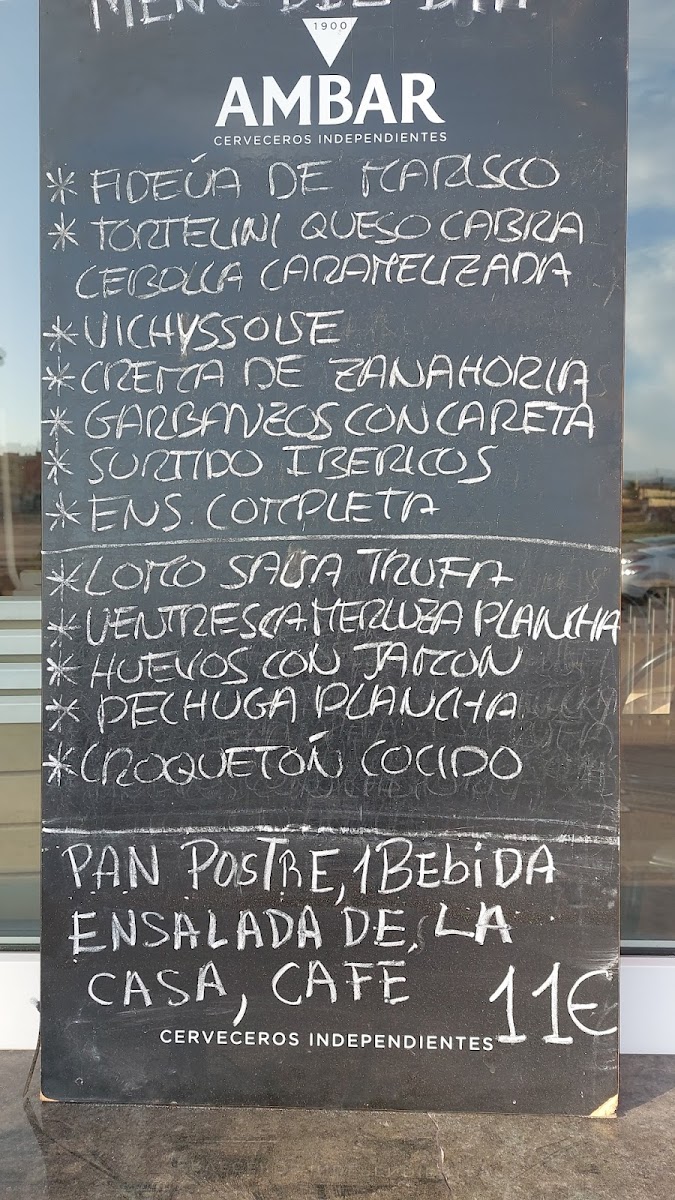 MENÚ DEL DÍA
1900
AMBAR
CERVECEROS INDEPENDIENTES
* FIDEÚA DE MARISCO
* TORTELINI QUESO CABRA
CEBOLLA CARAMELIZADA
* VICHYSSOISE
* CREMA DE ZANAHORIA
* GARBANZOS CON CARETA
* SURTIDO IBERICOS
* ENS. COMPLETA
* LOMO SALSA TRUFA
* VENTRESCA MERLUZA PLANCHA
* HUEVOS CON JAMON
* PECHUGA PLANCHA
* CROQUETÓN COCIDO
PAN POSTRE, 1 BEBiDA
ENSALADA DE LA
CASA, CAFE 11€
CERVECEROS INDEPENDIENTES